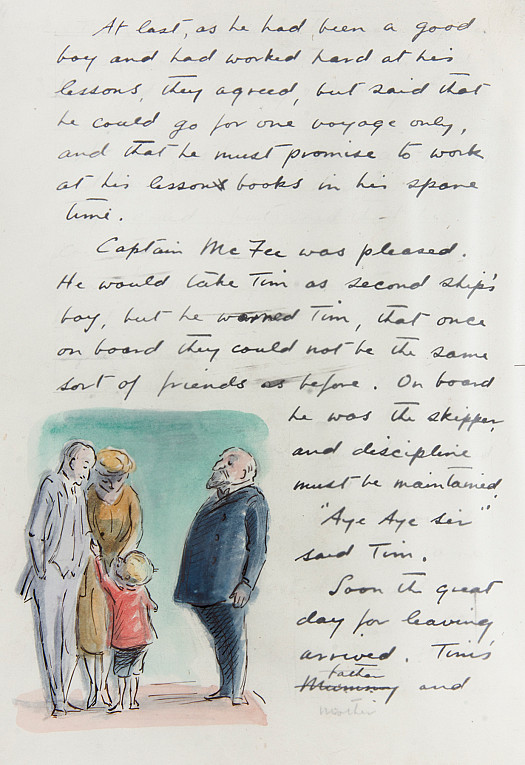 At last, as he had been a good
boy and had worked hard at his
lessons, they agreed, but said that
he could go for one voyage only,
and that he must promise to work
at his lesson books in his spare
time.
Captain McFee was pleased.
He would take Tim as second ship's
boy, but he warned Tim, that once
on board they could not be the same
sort of friends as before. On board
he was the skipper,
and discipline
must be maintained.
"Aye Aye Sir"
said Tim.
Soon the great
day for leaving
arrived. Tim's
father
Mummy and
mother